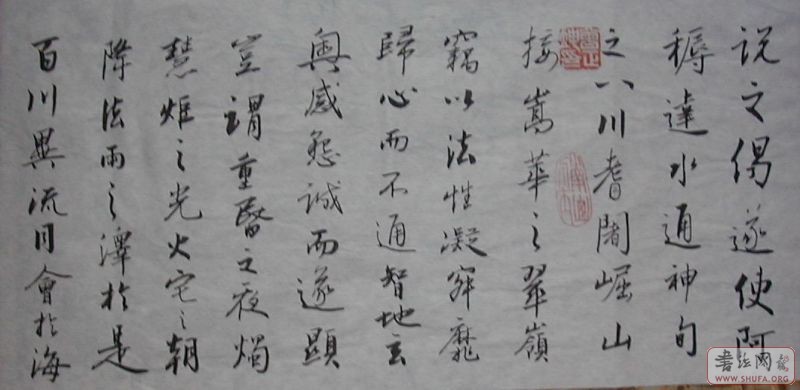 説之偈遂使阿
耨達水通神甸
之八川耆闍崛山
接嵩華之翠嶺
竊以法性凝寂靡
歸心而不通智地玄
奥感懇誠而遂顯
豈謂重昏之夜燭
慧炬之光火宅之朝
降法雨之澤於是
百川異流同會於海
WWW.SHUFA.ORG